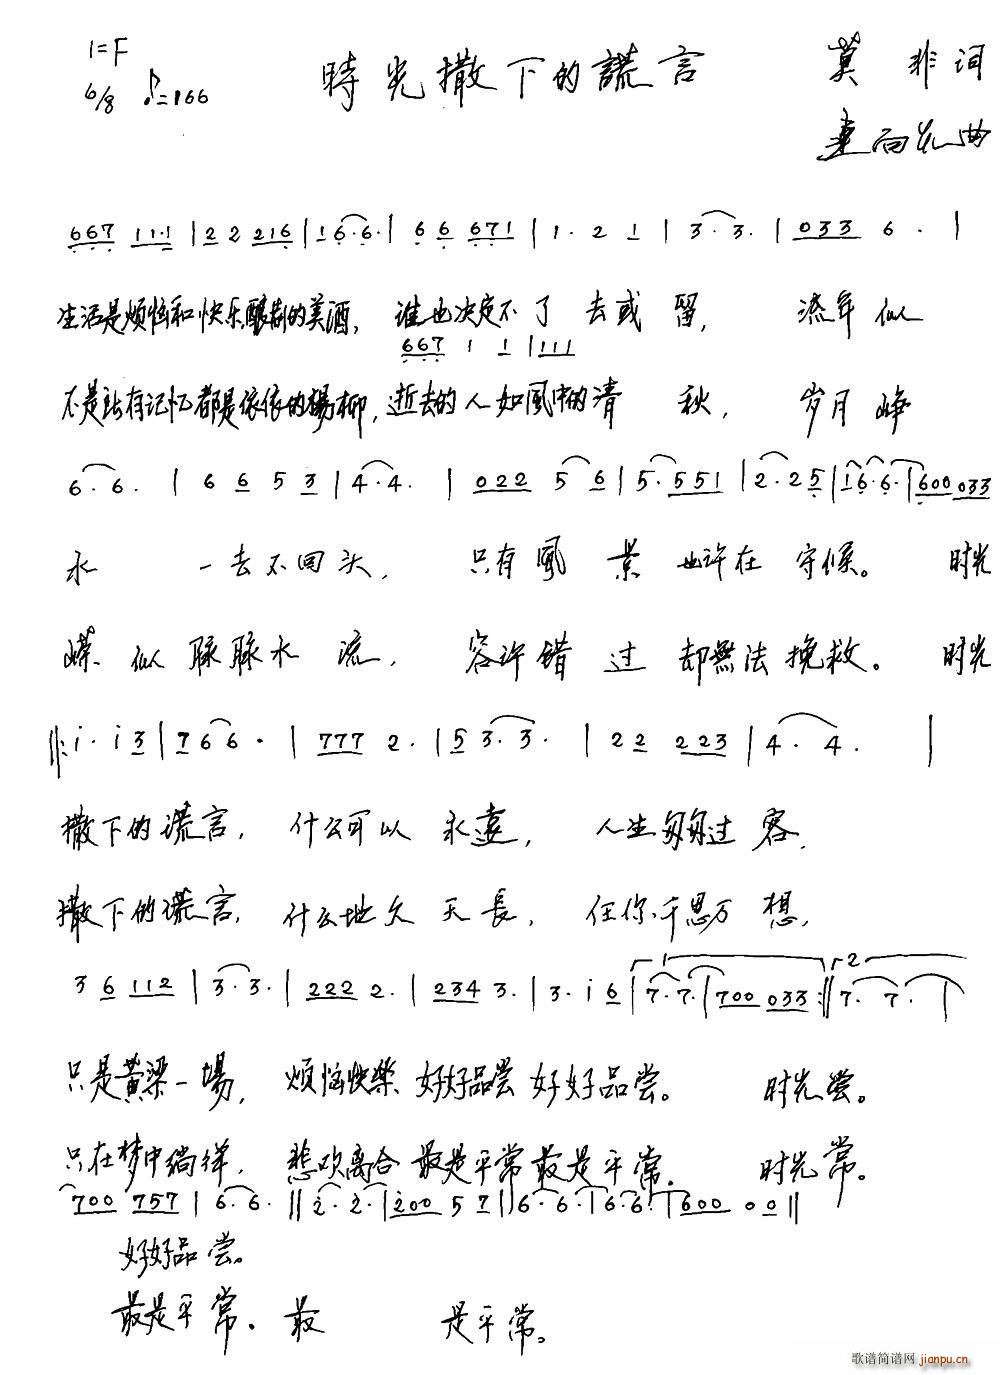 1=F 時光撒下的謊言 莫非词
6/8 ♪=166 曲
667 111 | 2 2 216 | 16·6· | 6 6 671 | 1· 2 1 | 3·3· | 033 6 · |
生活是烦恼和快乐酿制的美酒， 谁也决定不了 去或留， 流年似
667 1 1 | 111
不是所有记忆都是依依的楊柳，逝去的人如風中的清 秋， 岁月峥
6·6· | 6 6 5 3 | 4·4· | 022 5 6 | 5·551 | 2·25 | 16·6· | 600 033
水 一去不回头， 只有風景也许在守候。 时光
嵘 似脉脉水流， 容许错过却無法挽救。 时光
‖: i· i 3 | 7 6 6 · | 777 2· | 5 3·3· | 2 2 223 | 4· 4· |
撒下的谎言， 什么可以永遠， 人生匆匆过客，
撒下的谎言， 什么地久天長， 任你千思万想，
3 6 112 | 3·3· | 222 2· | 234 3· | 3· i 6 | 1 7·7· | 700 033 :‖ 2 7· 7· |
只是黄梁一場， 烦恼快樂 好好品尝 好好品尝。 时光尝。
只在梦中徜徉， 悲欢离合 最是平常 最是平常。 时光常。
700 757 | 6·6· ‖ 2·2· | 200 5 7 ‖ 6·6· | 6·6· | 600 00 ‖
好好品尝。
最是平常。最 是平常。
歌谱简谱网 jianpu.cn